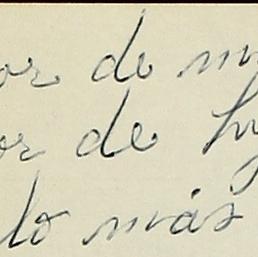 or de m
or de hy
lo más